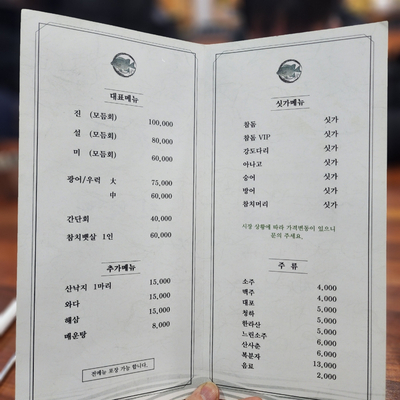 대표메뉴
진 (모듬회) 100,000
설 (모듬회) 80,000
미 (모듬회) 60,000
광어/우럭 大 75,000
中 60,000
간단회 40,000
참치뱃살 1인 60,000
추가메뉴
산낙지 1마리 15,000
와다 15,000
해삼 15,000
매운탕 8,000
전메뉴 포장 가능 합니다.
싯가메뉴
참돔 싯가
참돔 VIP 싯가
강도다리 싯가
아나고 싯가
숭어 싯가
방어 싯가
참치머리 싯가
시장 상황에 따라 가격변동이 있으니
문의 주세요.
주 류
소주 4,000
맥주 4,000
대포 5,000
청하 5,000
한라산 5,000
느린소주 5,000
산사춘 6,000
복분자 6,000
음료 13,000
2,000